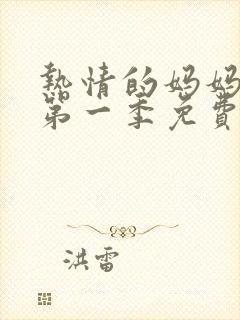 熱情的妈妈
第一季免費
洪雷